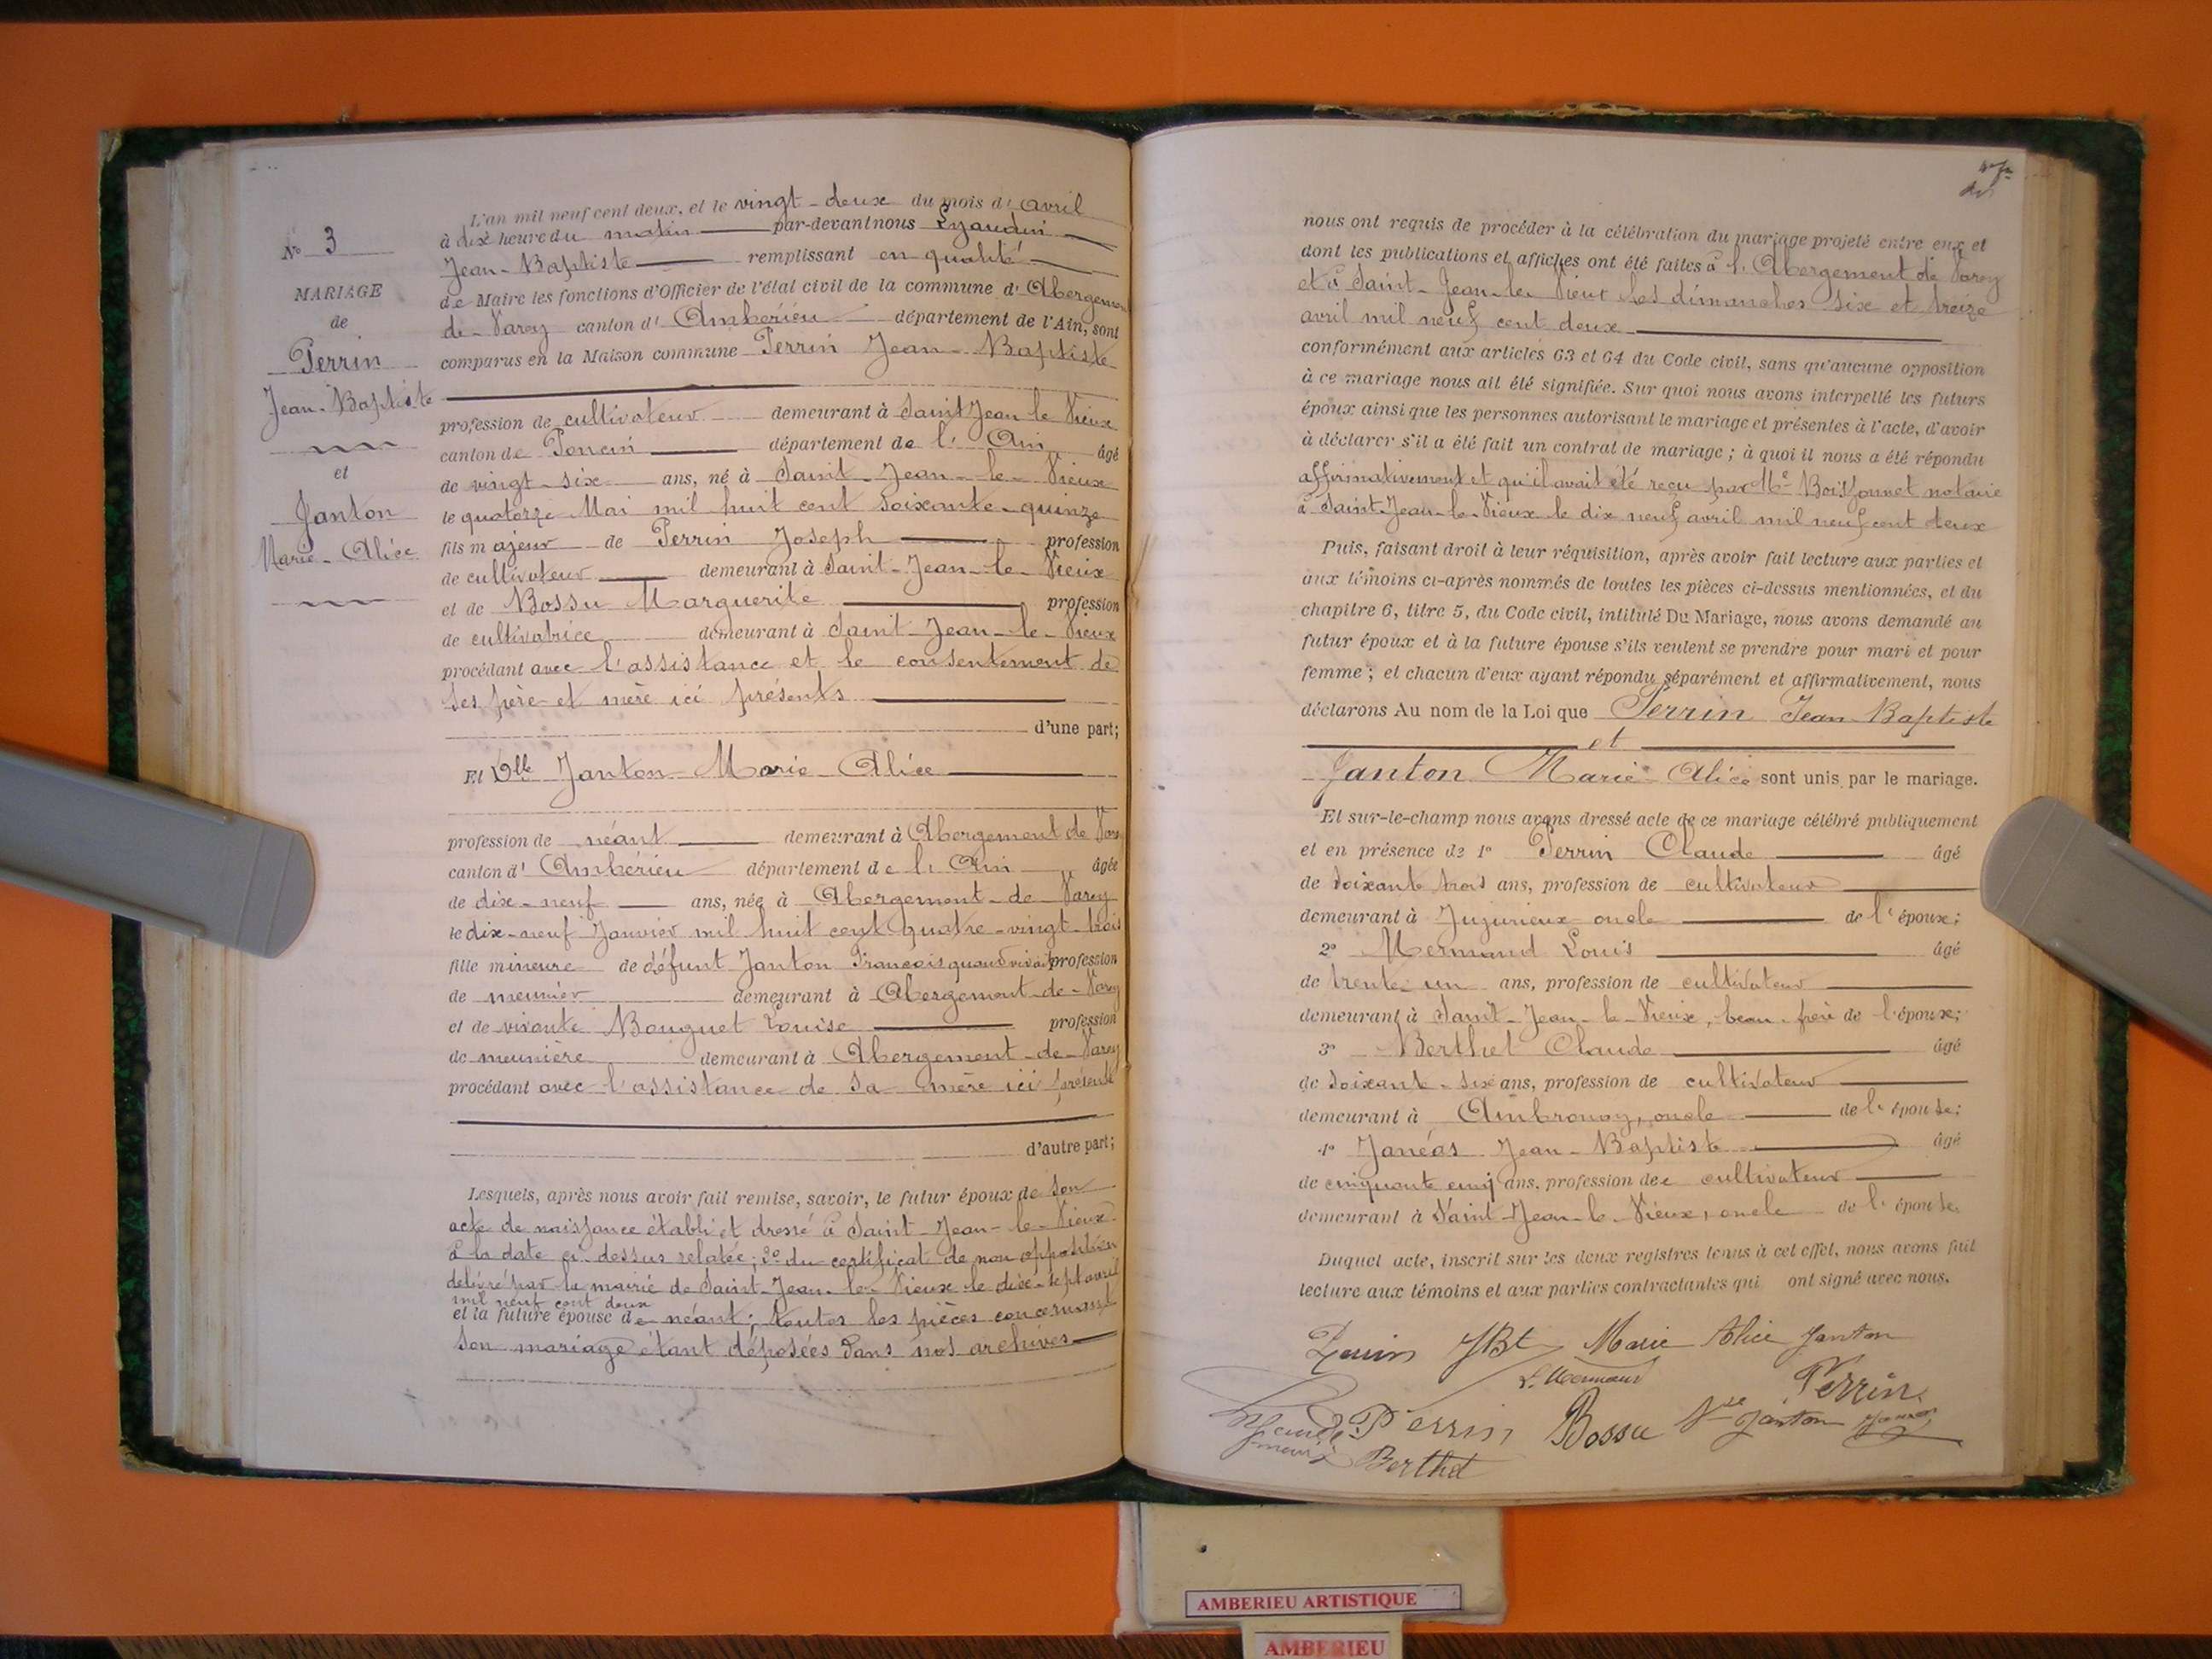 N° 3
MARIAGE
de
Perrin
Jean-Baptiste
et
Janton
Marie-Alice
L'an mil neuf cent deux, et le vingt-deux du mois d'avril
à dix heure du matin par-devant nous Lyaudin
Jean-Baptiste remplissant en qualité
de Maire les fonctions d'Officier de l'état civil de la commune d'Abergement
de-Varey canton d'Ambérieu département de l'Ain, sont
comparus en la Maison commune Perrin Jean-Baptiste
profession de cultivateur demeurant à Saint Jean le Vieux
canton de Poncin département de l'Ain âgé
de vingt-six ans, né à Saint-Jean-le-Vieux
le quatorze Mai mil huit cent soixante-quinze
fils majeur de Perrin Joseph profession
de cultivateur demeurant à Saint-Jean-le-Vieux
et de Bossu Marguerite profession
de cultivatrice demeurant à Saint-Jean-le-Vieux
procédant avec l'assistance et le consentement de
ses père et mère ici présents
d'une part;
Et Dlle Janton Marie-Alice
profession de néant demeurant à Abergement de Varey
canton d'Ambérieu département de l'Ain âgée
de dix-neuf ans, née à Abergement-de-Varey
le dix-neuf Janvier mil huit cent quatre-vingt-trois
fille mineure de défunt Janton François quand vivait profession
de meunier demeurant à Abergement-de-Varey
et de vivante Bouguet Louise profession
de meunière demeurant à Abergement-de-Varey
procédant avec l'assistance de sa mère ici présente
d'autre part;
Lesquels, après nous avoir fait remise, savoir, le futur époux de son
acte de naissance établi et dressé à Saint-Jean-le-Vieux
à la date ci dessus relatée; 2° du certificat de non opposition
délivré par la mairie de Saint-Jean-le-Vieux le dix-sept avril
mil neuf cent deux
et la future épouse de néant; toutes les pièces concernant
son mariage étant déposées dans nos archives
nous ont requis de procéder à la célébration du mariage projeté entre eux et
dont les publications et affiches ont été faites à l'Abergement de Varey
et à Saint-Jean-le-Vieux les dimanches six et treize
avril mil neuf cent deux
conformément aux articles 63 et 64 du Code civil, sans qu'aucune opposition
à ce mariage nous ait été signifiée. Sur quoi nous avons interpellé les futurs
époux ainsi que les personnes autorisant le mariage et présentes à l'acte, d'avoir
à déclarer s'il a été fait un contrat de mariage; à quoi il nous a été répondu
affirmativement et qu'il avait été reçu par Me Boissonnet notaire
à Saint-Jean-le-Vieux le dix neuf avril mil neuf cent deux
Puis, faisant droit à leur réquisition, après avoir fait lecture aux parties et
aux témoins ci-après nommés de toutes les pièces ci-dessus mentionnées, et du
chapitre 6, titre 5, du Code civil, intitulé Du Mariage, nous avons demandé au
futur époux et à la future épouse s'ils veulent se prendre pour mari et pour
femme; et chacun d'eux ayant répondu séparément et affirmativement, nous
déclarons Au nom de la Loi que Perrin Jean Baptiste
et
Janton Marie Alice sont unis par le mariage.
Et sur-le-champ nous avons dressé acte de ce mariage célébré publiquement
et en présence de 1° Perrin Claude âgé
de soixante trois ans, profession de cultivateur
demeurant à Jujurieux oncle de l'époux;
2° Mermand Louis âgé
de trente-un ans, profession de cultivateur
demeurant à Saint-Jean-le-Vieux, beau-frère de l'époux;
3° Berthet Claude âgé
de soixante-six ans, profession de cultivateur
demeurant à Ambronay, oncle de l'épouse;
4° Janéas Jean-Baptiste âgé
de cinquante cinq ans, profession de cultivateur
demeurant à Saint-Jean-le-Vieux, oncle de l'épouse
Duquel acte, inscrit sur les deux registres tenus à cet effet, nous avons fait
lecture aux témoins et aux parties contractantes qui ont signé avec nous.
Perrin JBt Marie Alice Janton
L. Mermand Perrin
Perrin Bossu Vve Janton
Berthet
AMBERIEU ARTISTIQUE
AMBERIEU